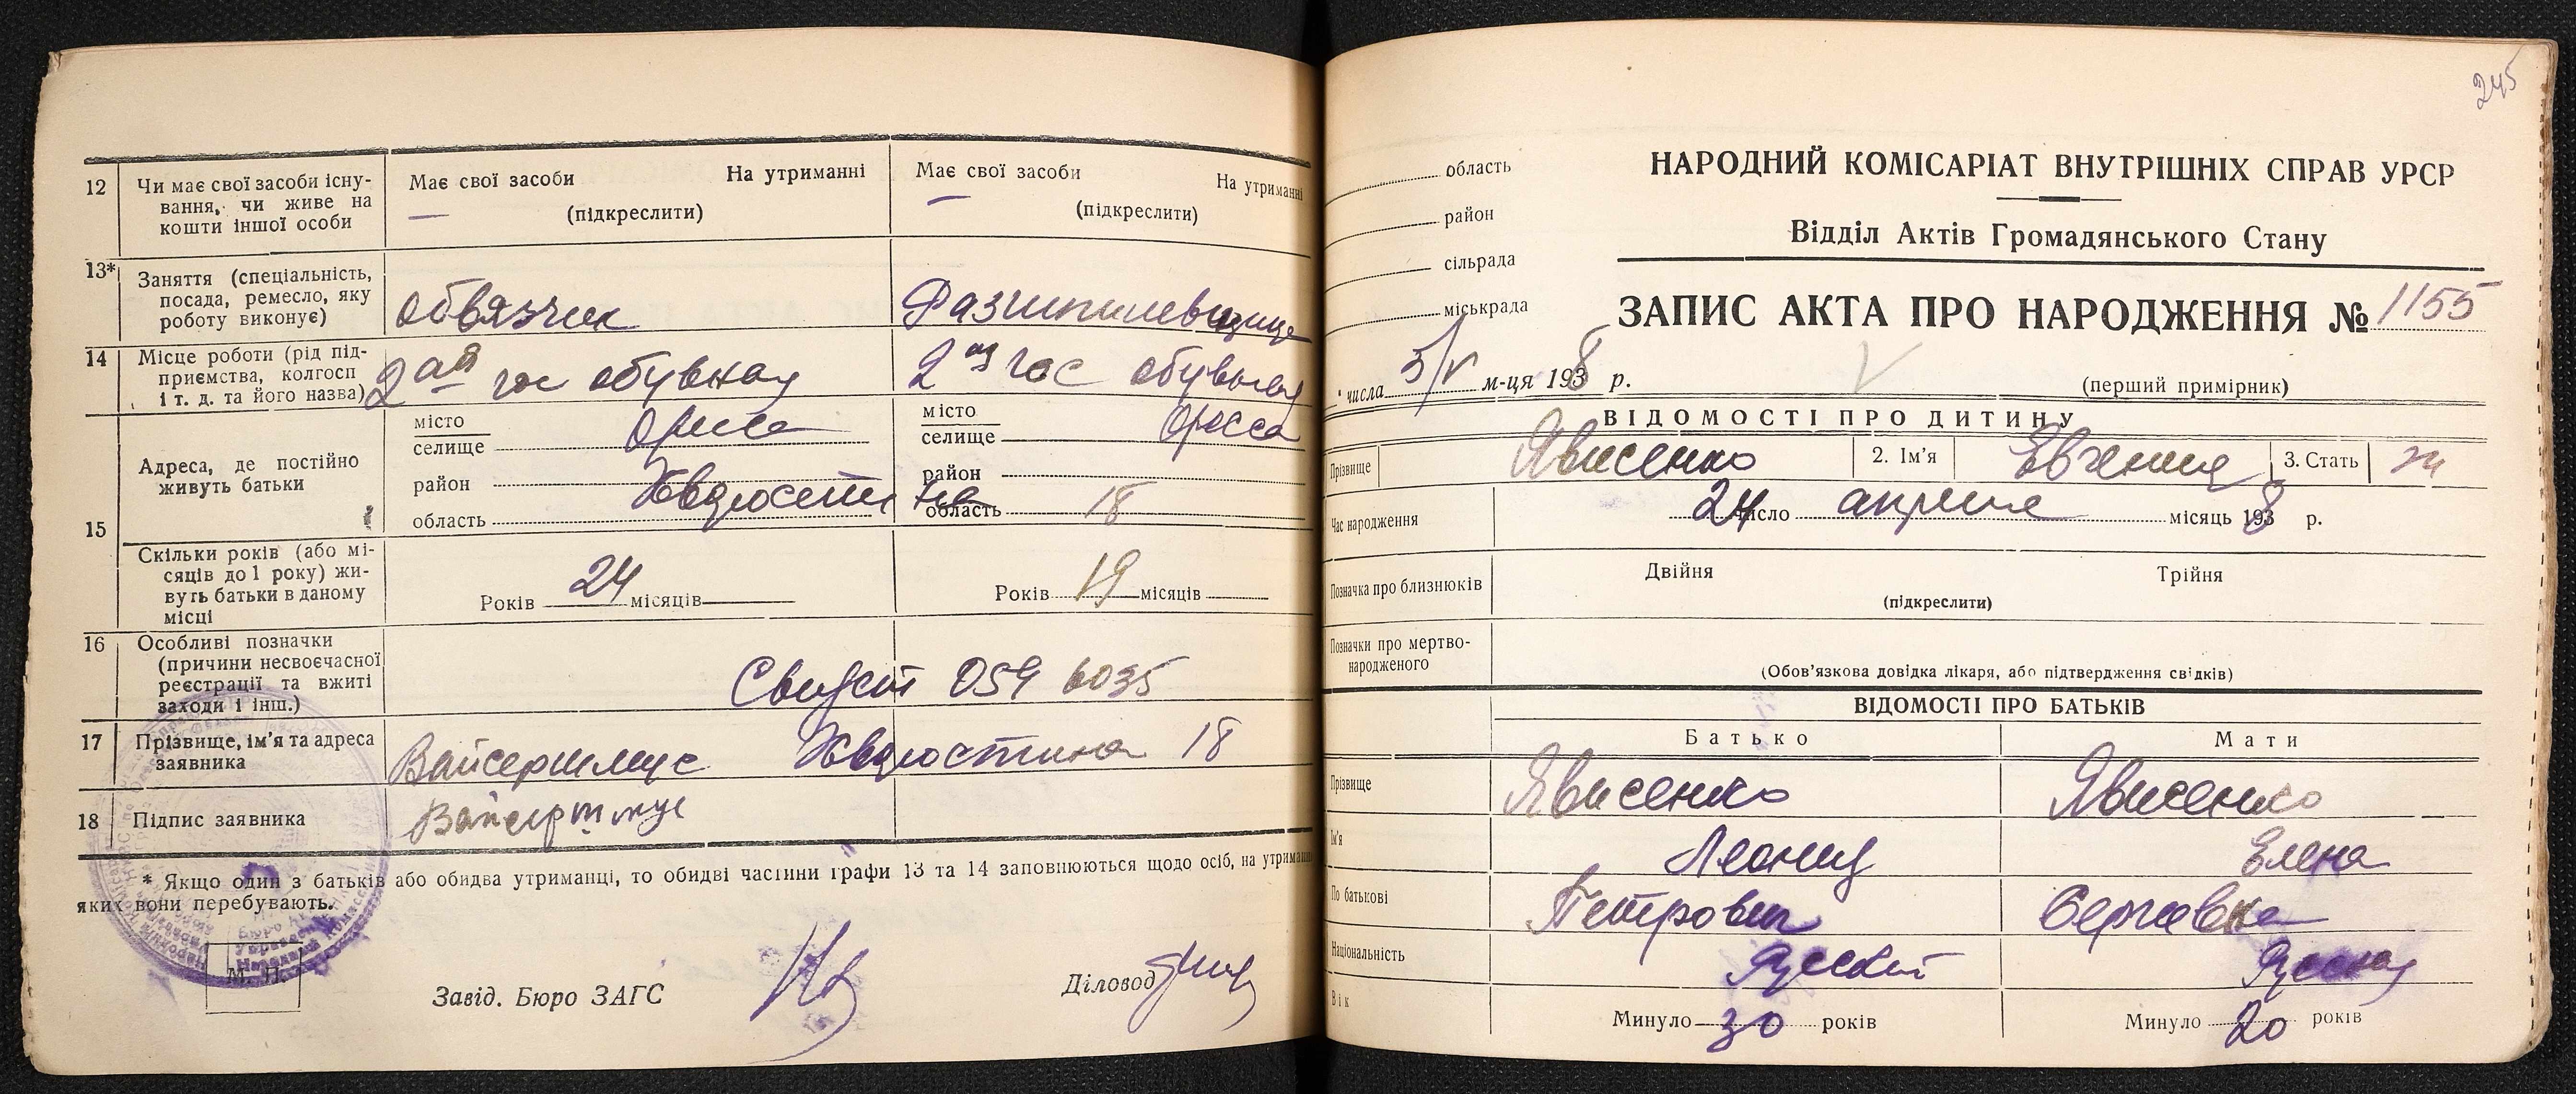 12
Чи має свої засоби існу-
вання, чи живе на
кошти іншої особи
Має свої засоби На утриманні
—
(підкреслити)
Має свої засоби На утриманні
—
(підкреслити)
13*
Заняття (спеціальність,
посада, ремесло, яку
роботу виконує)
обвязчик
14
Місце роботи (рід під-
приємства, колгосп
і т. д. та його назва)
2ая гос обувная
2ая гос обувная
15
Адреса, де постійно
живуть батьки
місто
селище
Одесса
район
область
місто
селище
Одесса
район
область
18
Скільки років (або мі-
сяців до 1 року) жи-
вуть батьки в даному
місці
Років 24 місяців
Років 19 місяців
16
Особливі позначки
(причини несвоєчасної
реєстрації та вжиті
заходи і інш.)
Свидет 059 6035
17
Прізвище, ім'я та адреса
заявника
Вайсертмус Хвдюстина 18
18
Підпис заявника
Вайсертмус
* Якщо один з батьків або обидва утриманці, то обидві частини графи 13 та 14 заповнюються щодо осіб, на утриманні
яких вони перебувають.
М. П.
Завід. Бюро ЗАГС
Діловод
245
область
район
сільрада
міськрада
НАРОДНИЙ КОМІСАРІАТ ВНУТРІШНІХ СПРАВ УРСР
Відділ Актів Громадянського Стану
ЗАПИС АКТА ПРО НАРОДЖЕННЯ № 1155
" числа 5/V м-ця 1938 р.
(перший примірник)
ВІДОМОСТІ ПРО ДИТИНУ
Прізвище Явисенко 2. Ім'я Евгения 3. Стать ж
Час народження
24 число апреля місяць 1938 р.
Позначка про близнюків
Двійня Трійня
(підкреслити)
Позначки про мертво-
народженого
(Обов'язкова довідка лікаря, або підтвердження свідків)
ВІДОМОСТІ ПРО БАТЬКІВ
Батько Мати
Прізвище Явисенко Явисенко
Ім'я Леонид Елена
По батькові Петрович Сергеевна
Національність Русский Русская
Вік
Минуло 30 років Минуло 20 років